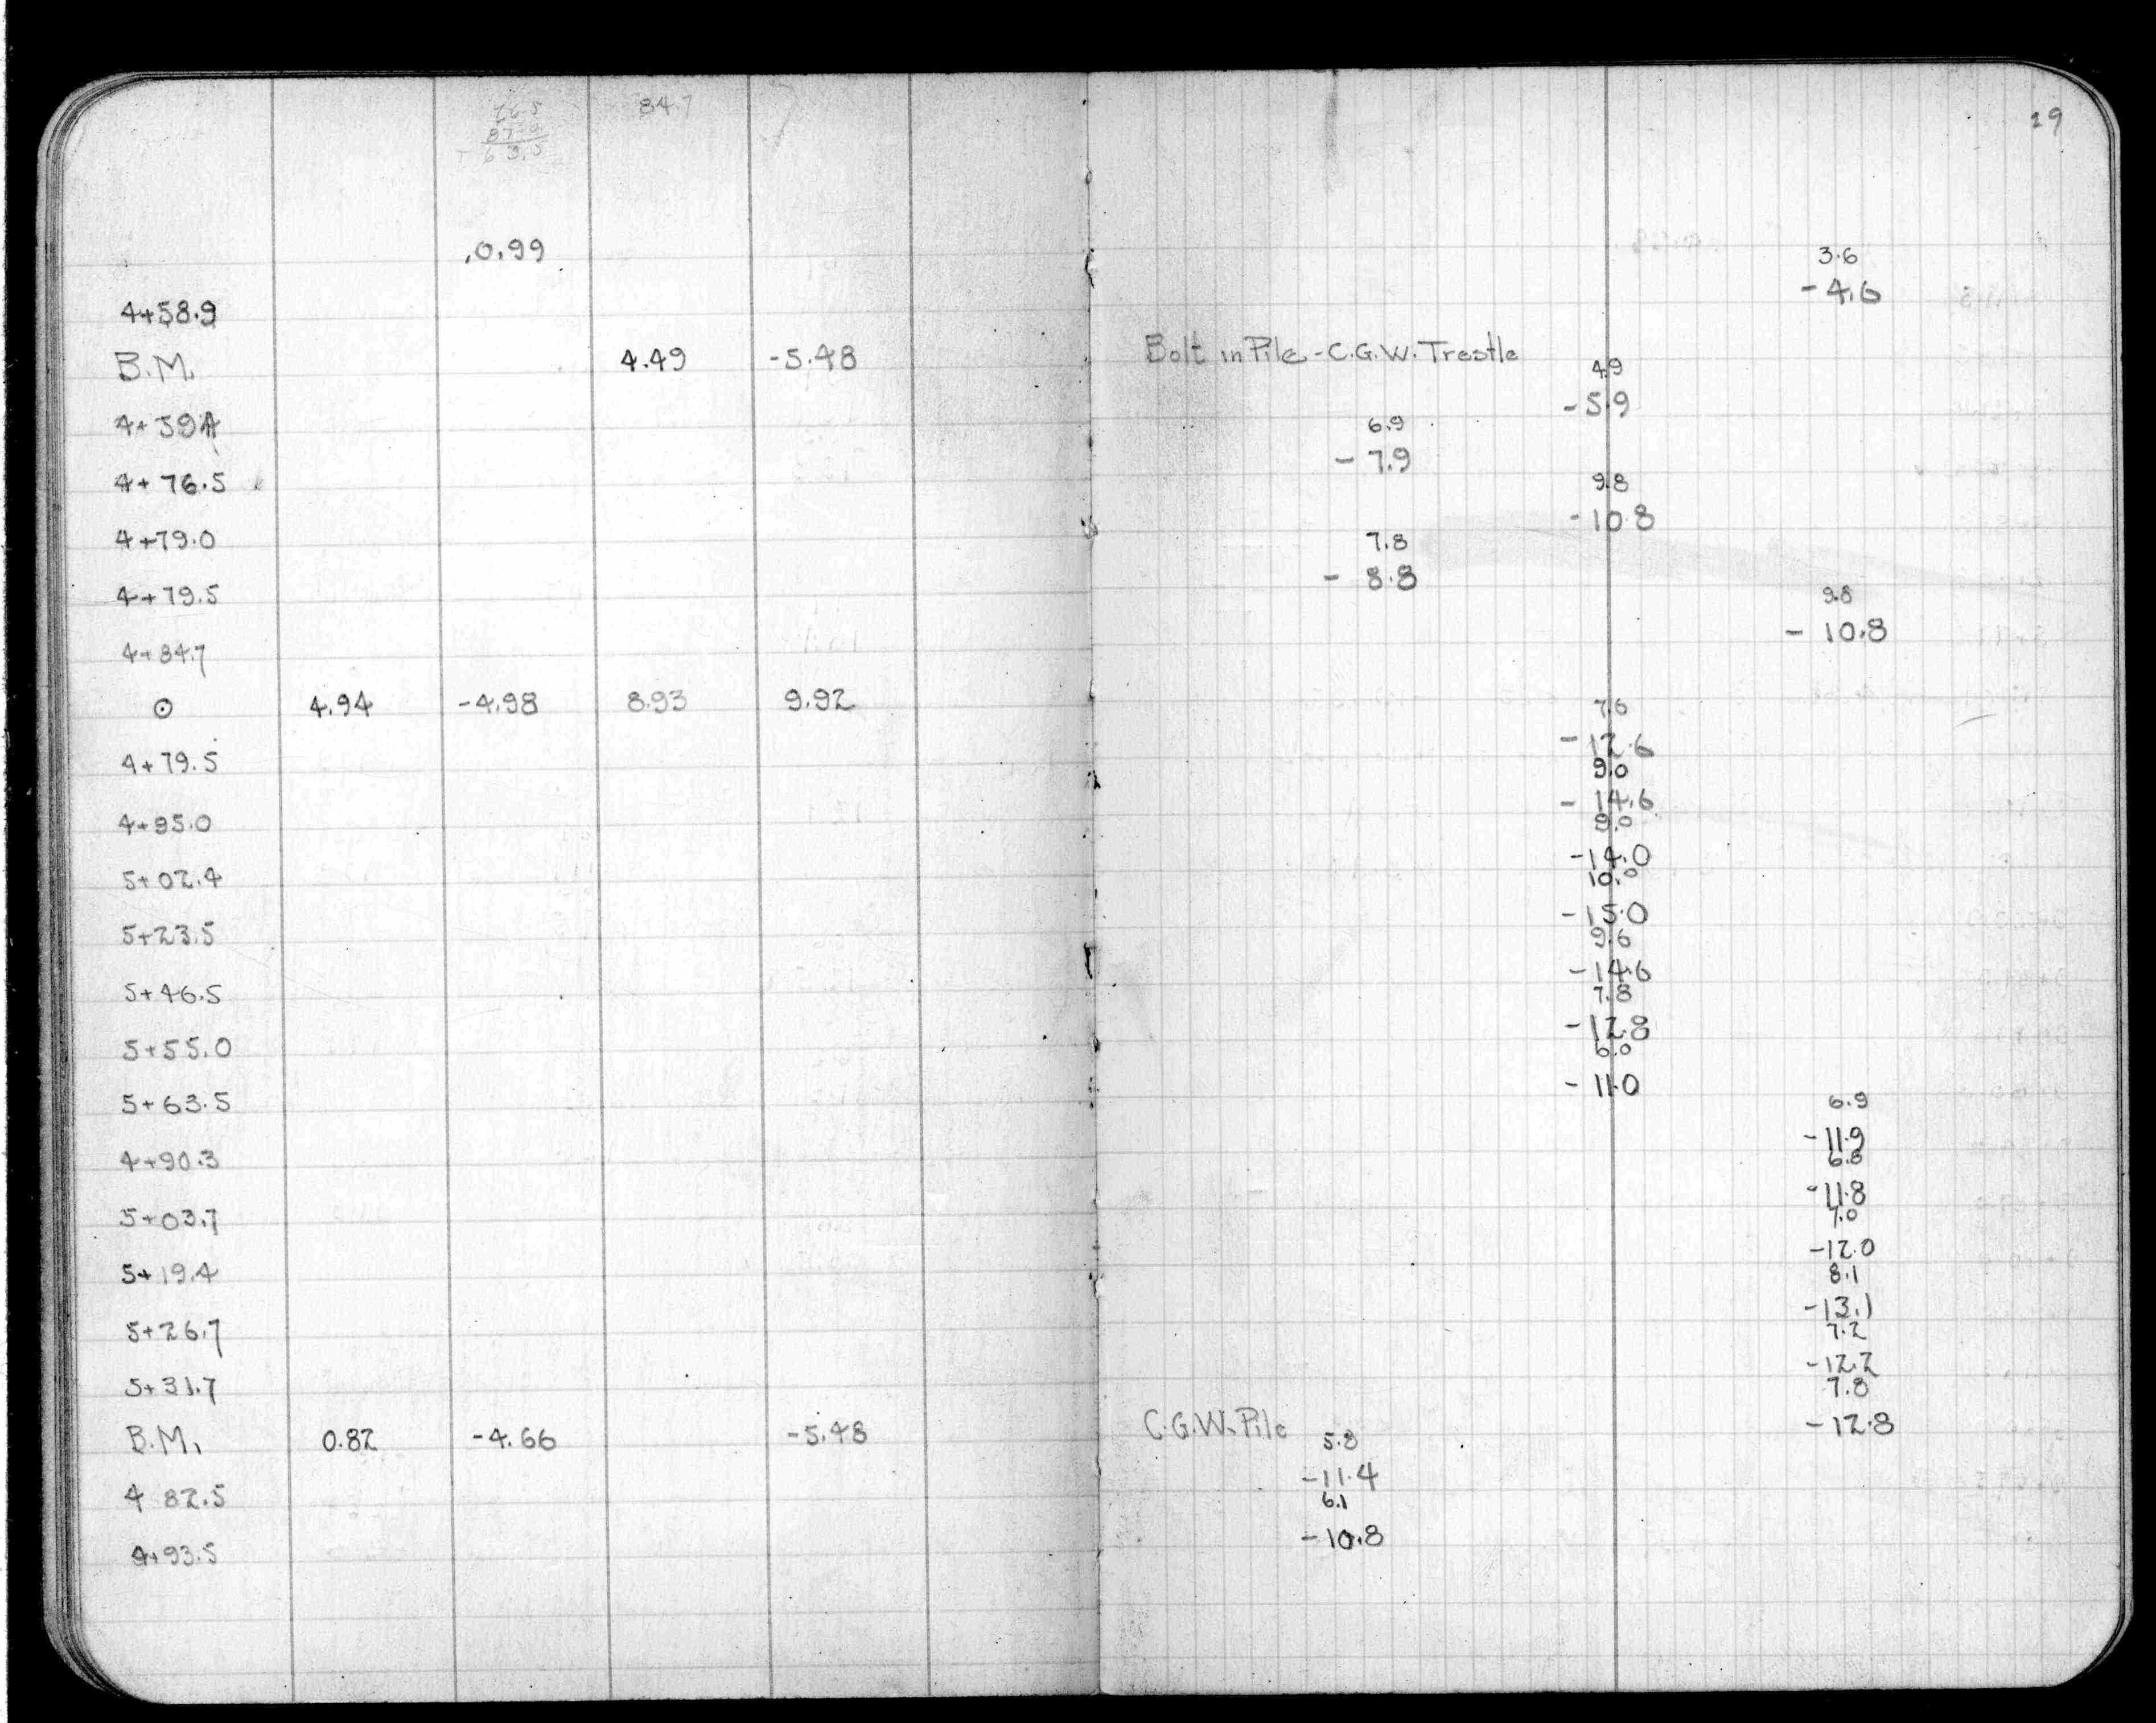 84.7
29
.0.99
3.6
4+58.9 - 4.6
B.M. 4.49 -5.48 Bolt in Pile - C.G.W. Trestle 4.9
4+59.4 6.9 -5.9
4+76.5 - 7.9 9.8
4+79.0 7.8 -10.8
4+79.5 - 8.8 9.8
4+84.7 - 10.8
⊙ 4.94 -4.98 8.93 9.92 7.6
4+79.5 -12.6
9.0
4+95.0 - 14.6
9.0
5+02.4 -14.0
10.0
5+23.5 -15.0
9.6
5+46.5 -14.6
7.8
5+55.0 -12.8
6.0
5+63.5 - 11.0
6.9
4+90.3 -11.9
6.8
5+03.7 -11.8
7.0
5+19.4 -12.0
8.1
5+26.7 -13.1
7.2
5+31.7 -12.2
7.8
B.M. 0.82 -4.66 -5.48 C.G.W. Pile 5.8 -12.8
4 82.5 -11.4
6.1
4+93.5 -10.8